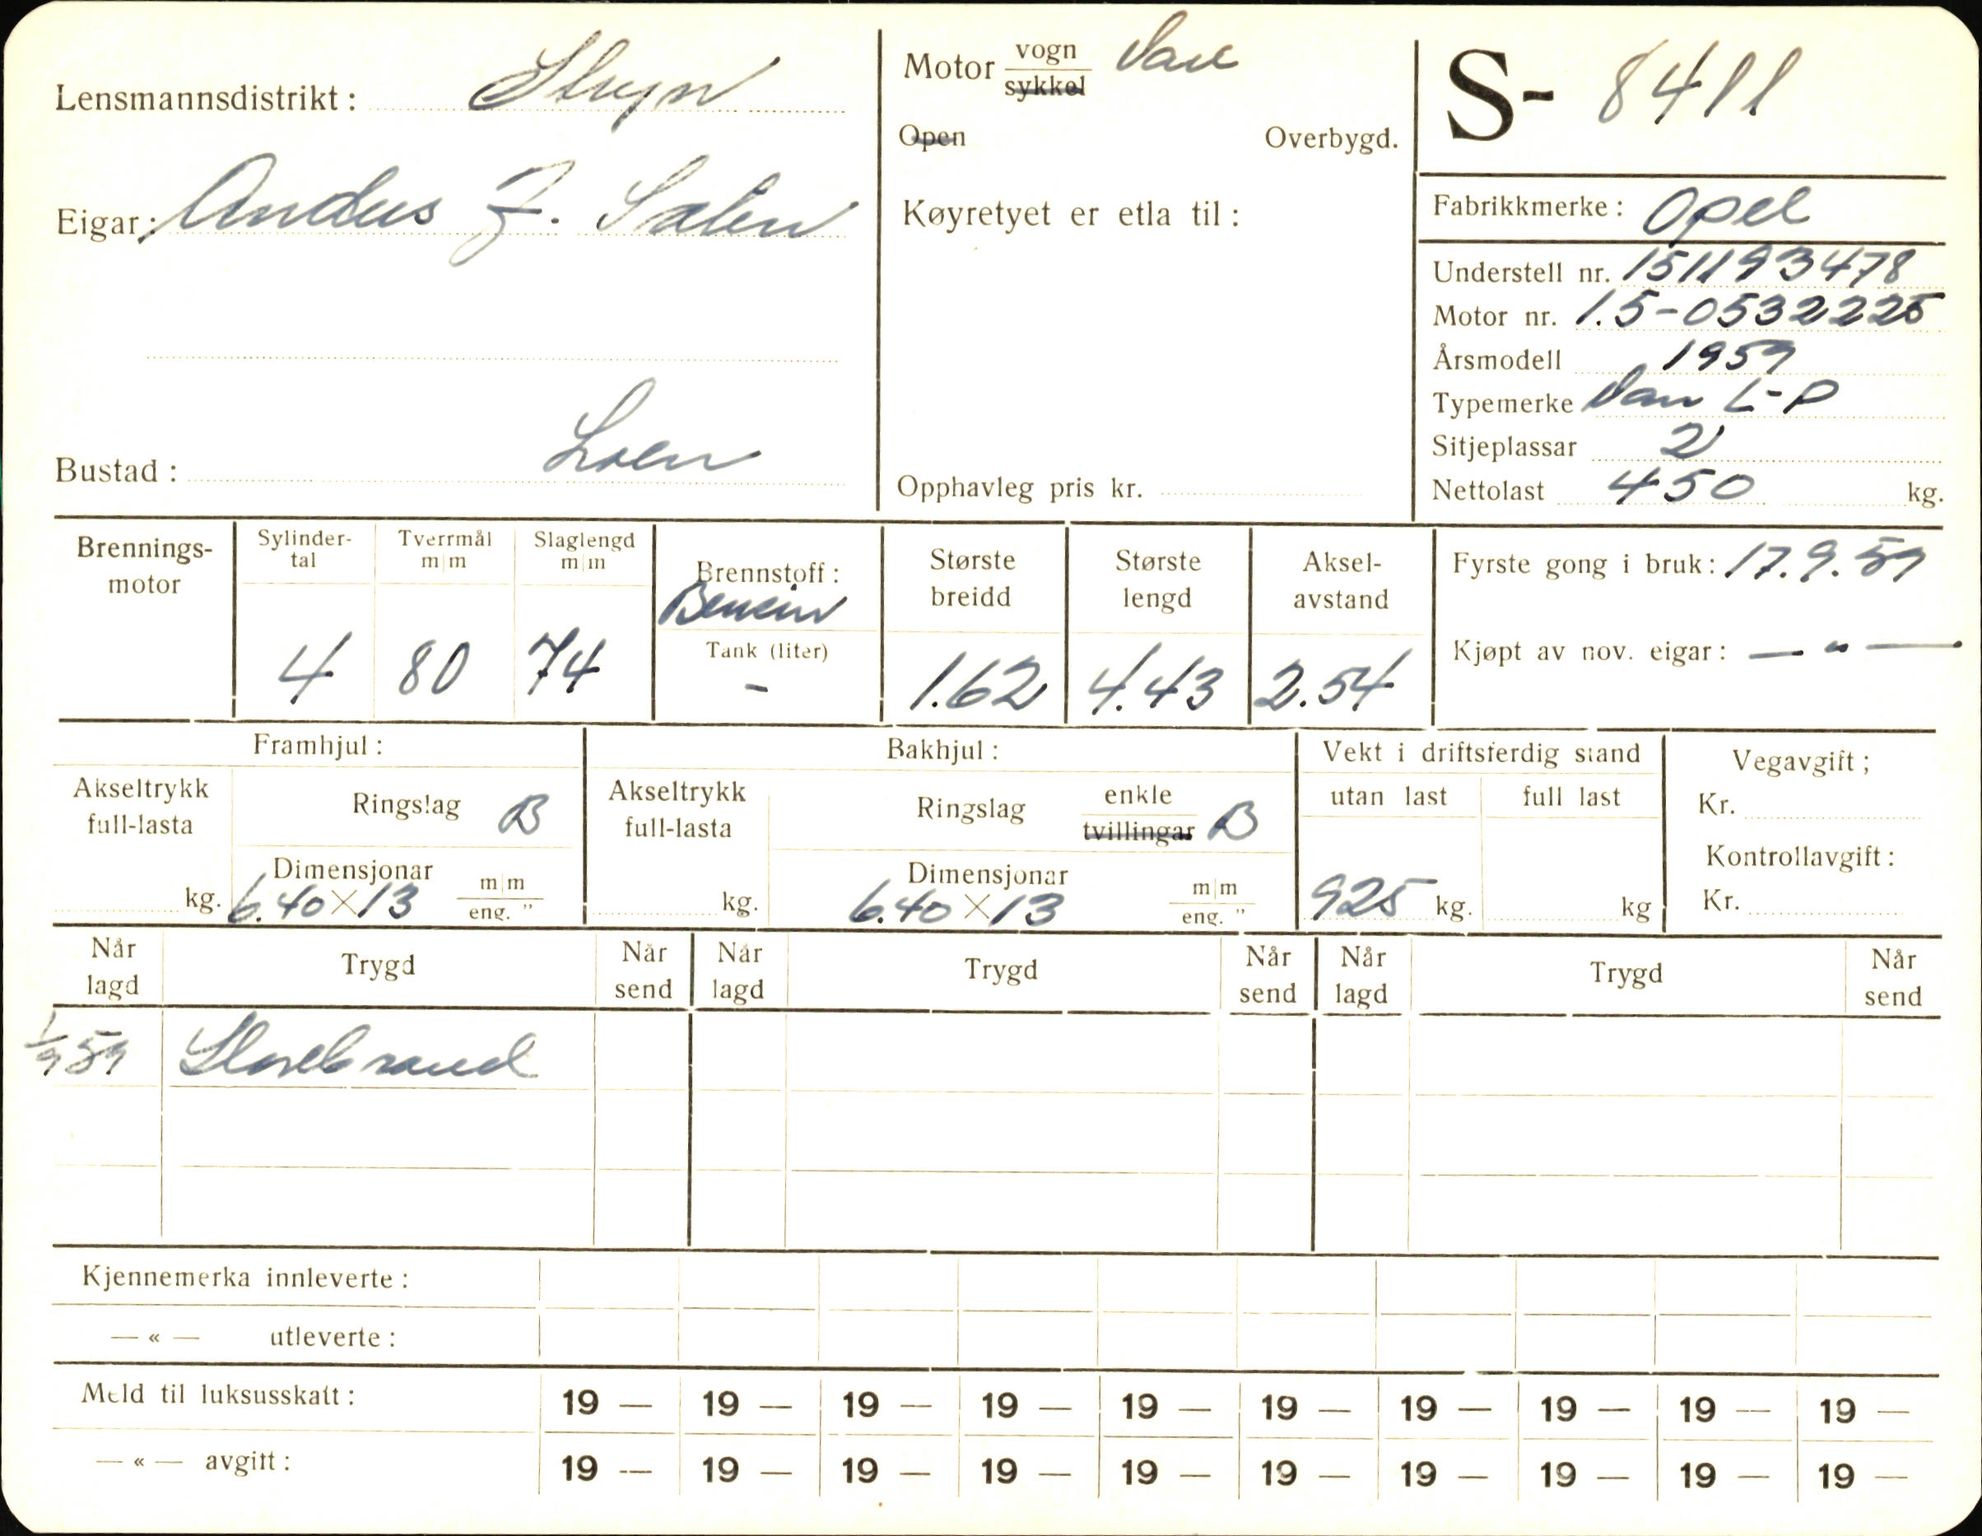 Lensmannsdistrikt: Stryn
Eigar: Andus J. Sælen
Bustad: Loen
Motor vogn Vare
sykkel
Open Overbygd.
Køyretyet er etla til:
Opphavleg pris kr.
S- 8411
Fabrikkmerke: Opel
Understell nr. 151193478
Motor nr. 1.5-0532225
Årsmodell 1959
Typemerke Van L-P
Sitjeplassar 2
Nettolast 450 kg.
Brennings-
motor
Sylinder-
tal
4
Tverrmål
m|m
80
Slaglengd
m|m
74
Brennstoff:
Bensin
Tank (liter)
-
Største
breidd
1.62
Største
lengd
4.43
Aksel-
avstand
2.54
Fyrste gong i bruk: 17.9.59
Kjøpt av nov. eigar: — " —
Framhjul:
Akseltrykk
full-lasta
kg.
Ringslag B
Dimensjonar
6.40 × 13 m|m
eng. "
Bakhjul:
Akseltrykk
full-lasta
kg.
Ringslag enkle
tvillingar B
Dimensjonar
6.40 × 13 m|m
eng. "
Vekt i driftsferdig stand
utan last full last
925 kg. kg
Vegavgift;
Kr.
Kontrollavgift:
Kr.
Når
lagd Trygd Når
send Når
lagd Trygd Når
send Når
lagd Trygd Når
send
1/9 59 Storebrand
Kjennemerka innleverte:
— « — utleverte:
Meld til luksusskatt: 19 — 19 — 19 — 19 — 19 — 19 — 19 — 19 — 19 — 19 —
— « — avgift: 19 — 19 — 19 — 19 — 19 — 19 — 19 — 19 — 19 — 19 —